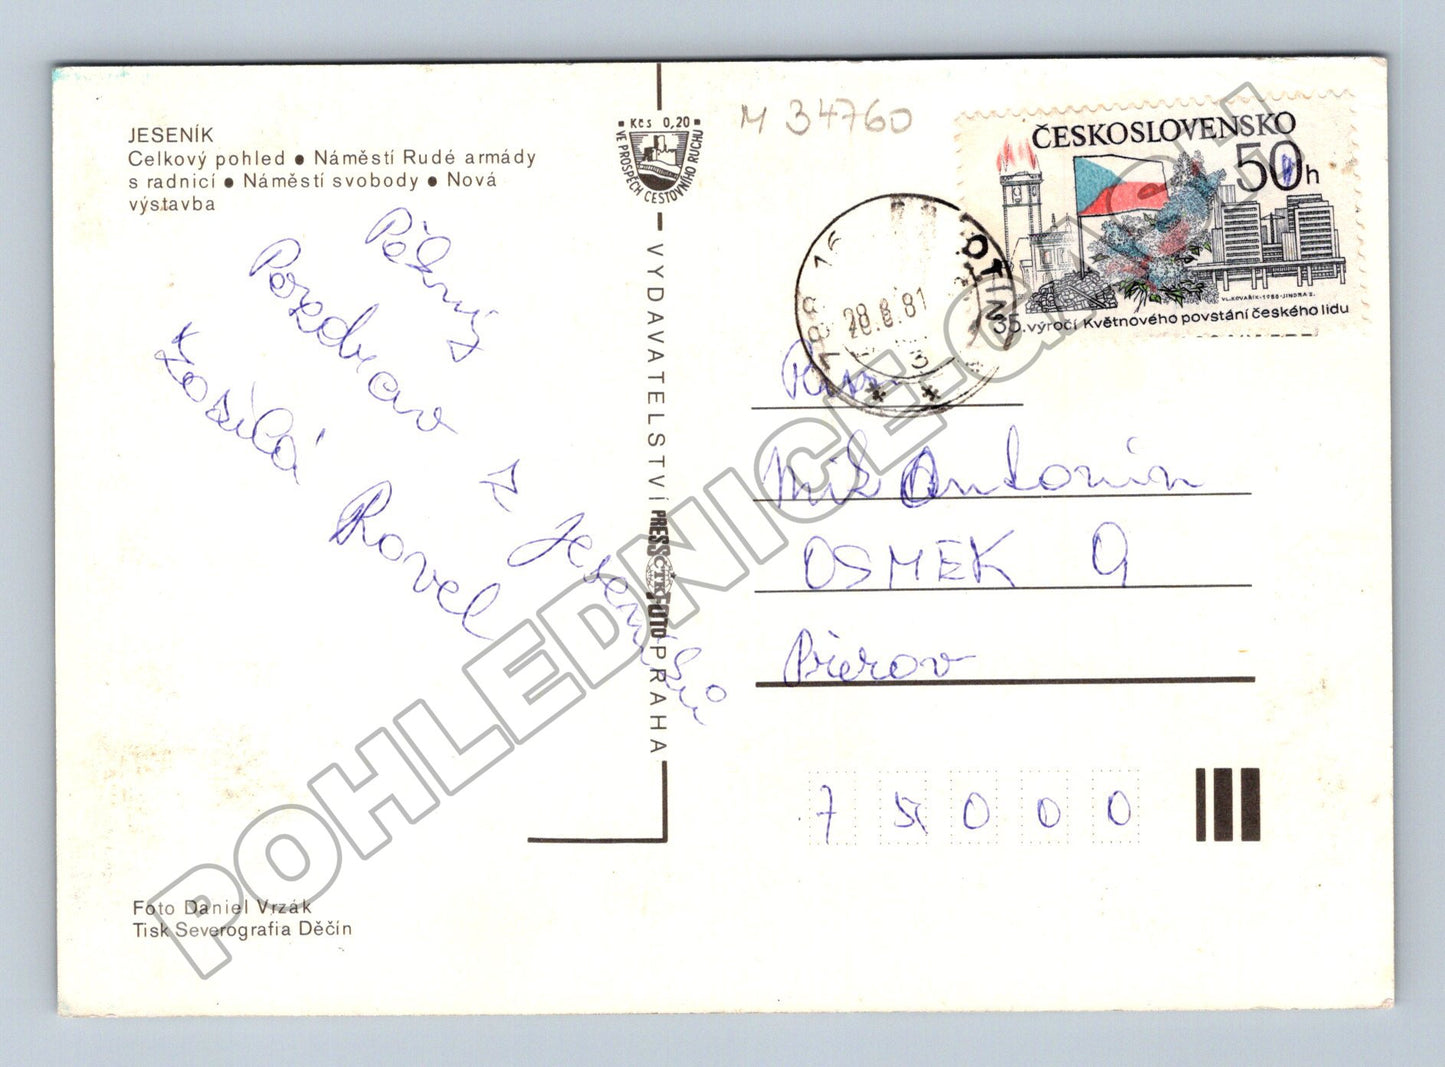 JESENÍK
Celkový pohled • Náměstí Rudé armády
s radnicí • Náměstí svobody • Nová
výstavba
Pěkný
Pozdrav z Jeseníků
Zasílá Pavel
Kčs 0,20
VE PROSPĚCH CESTOVNÍHO RUCHU
VYDAVATELSTVÍ PRESSFOTO PRAHA
ČTK
M 34760
ČESKOSLOVENSKO
50h
VL.KOVAŘÍK-1980-JINDRA Z.
35. výročí Květnového povstání českého lidu
28.8.81
16
3
Pan
Mik Antonín
OSMEK 9
Přerov
75000
Foto Daniel Vrzák
Tisk Severografia Děčín
POHLEDNICE.GMC.CZ